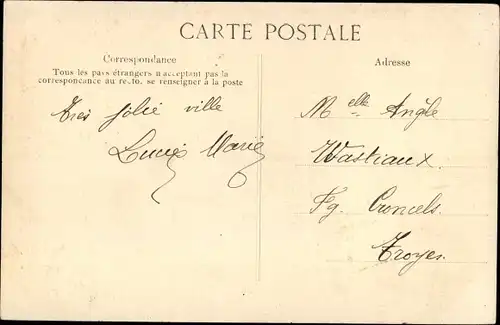 CARTE POSTALE
Correspondance
Tous les pays étrangers n'acceptant pas la
correspondance au recto, se renseigner à la poste
Très jolie ville
Lucie Marie
Adresse
Melle Angèle
Wastiaux.
Fg. Croncels.
Troyes.